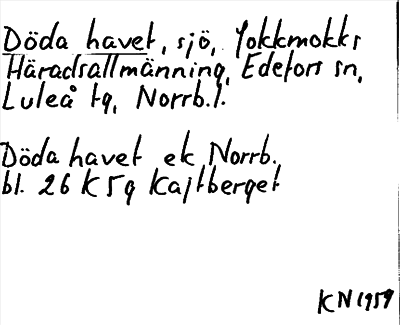 Döda havet, sjö, Jokkmokks
Häradsallmänning, Edefors sn,
Luleå tg, Norrb.l.
Döda havet ek Norrb.
bl. 26 K 5g Kajtberget
KN 1959